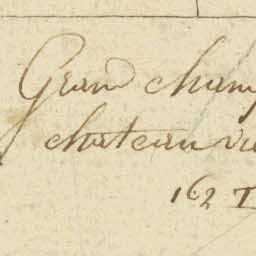 Grand champ
chateau vi
162 T